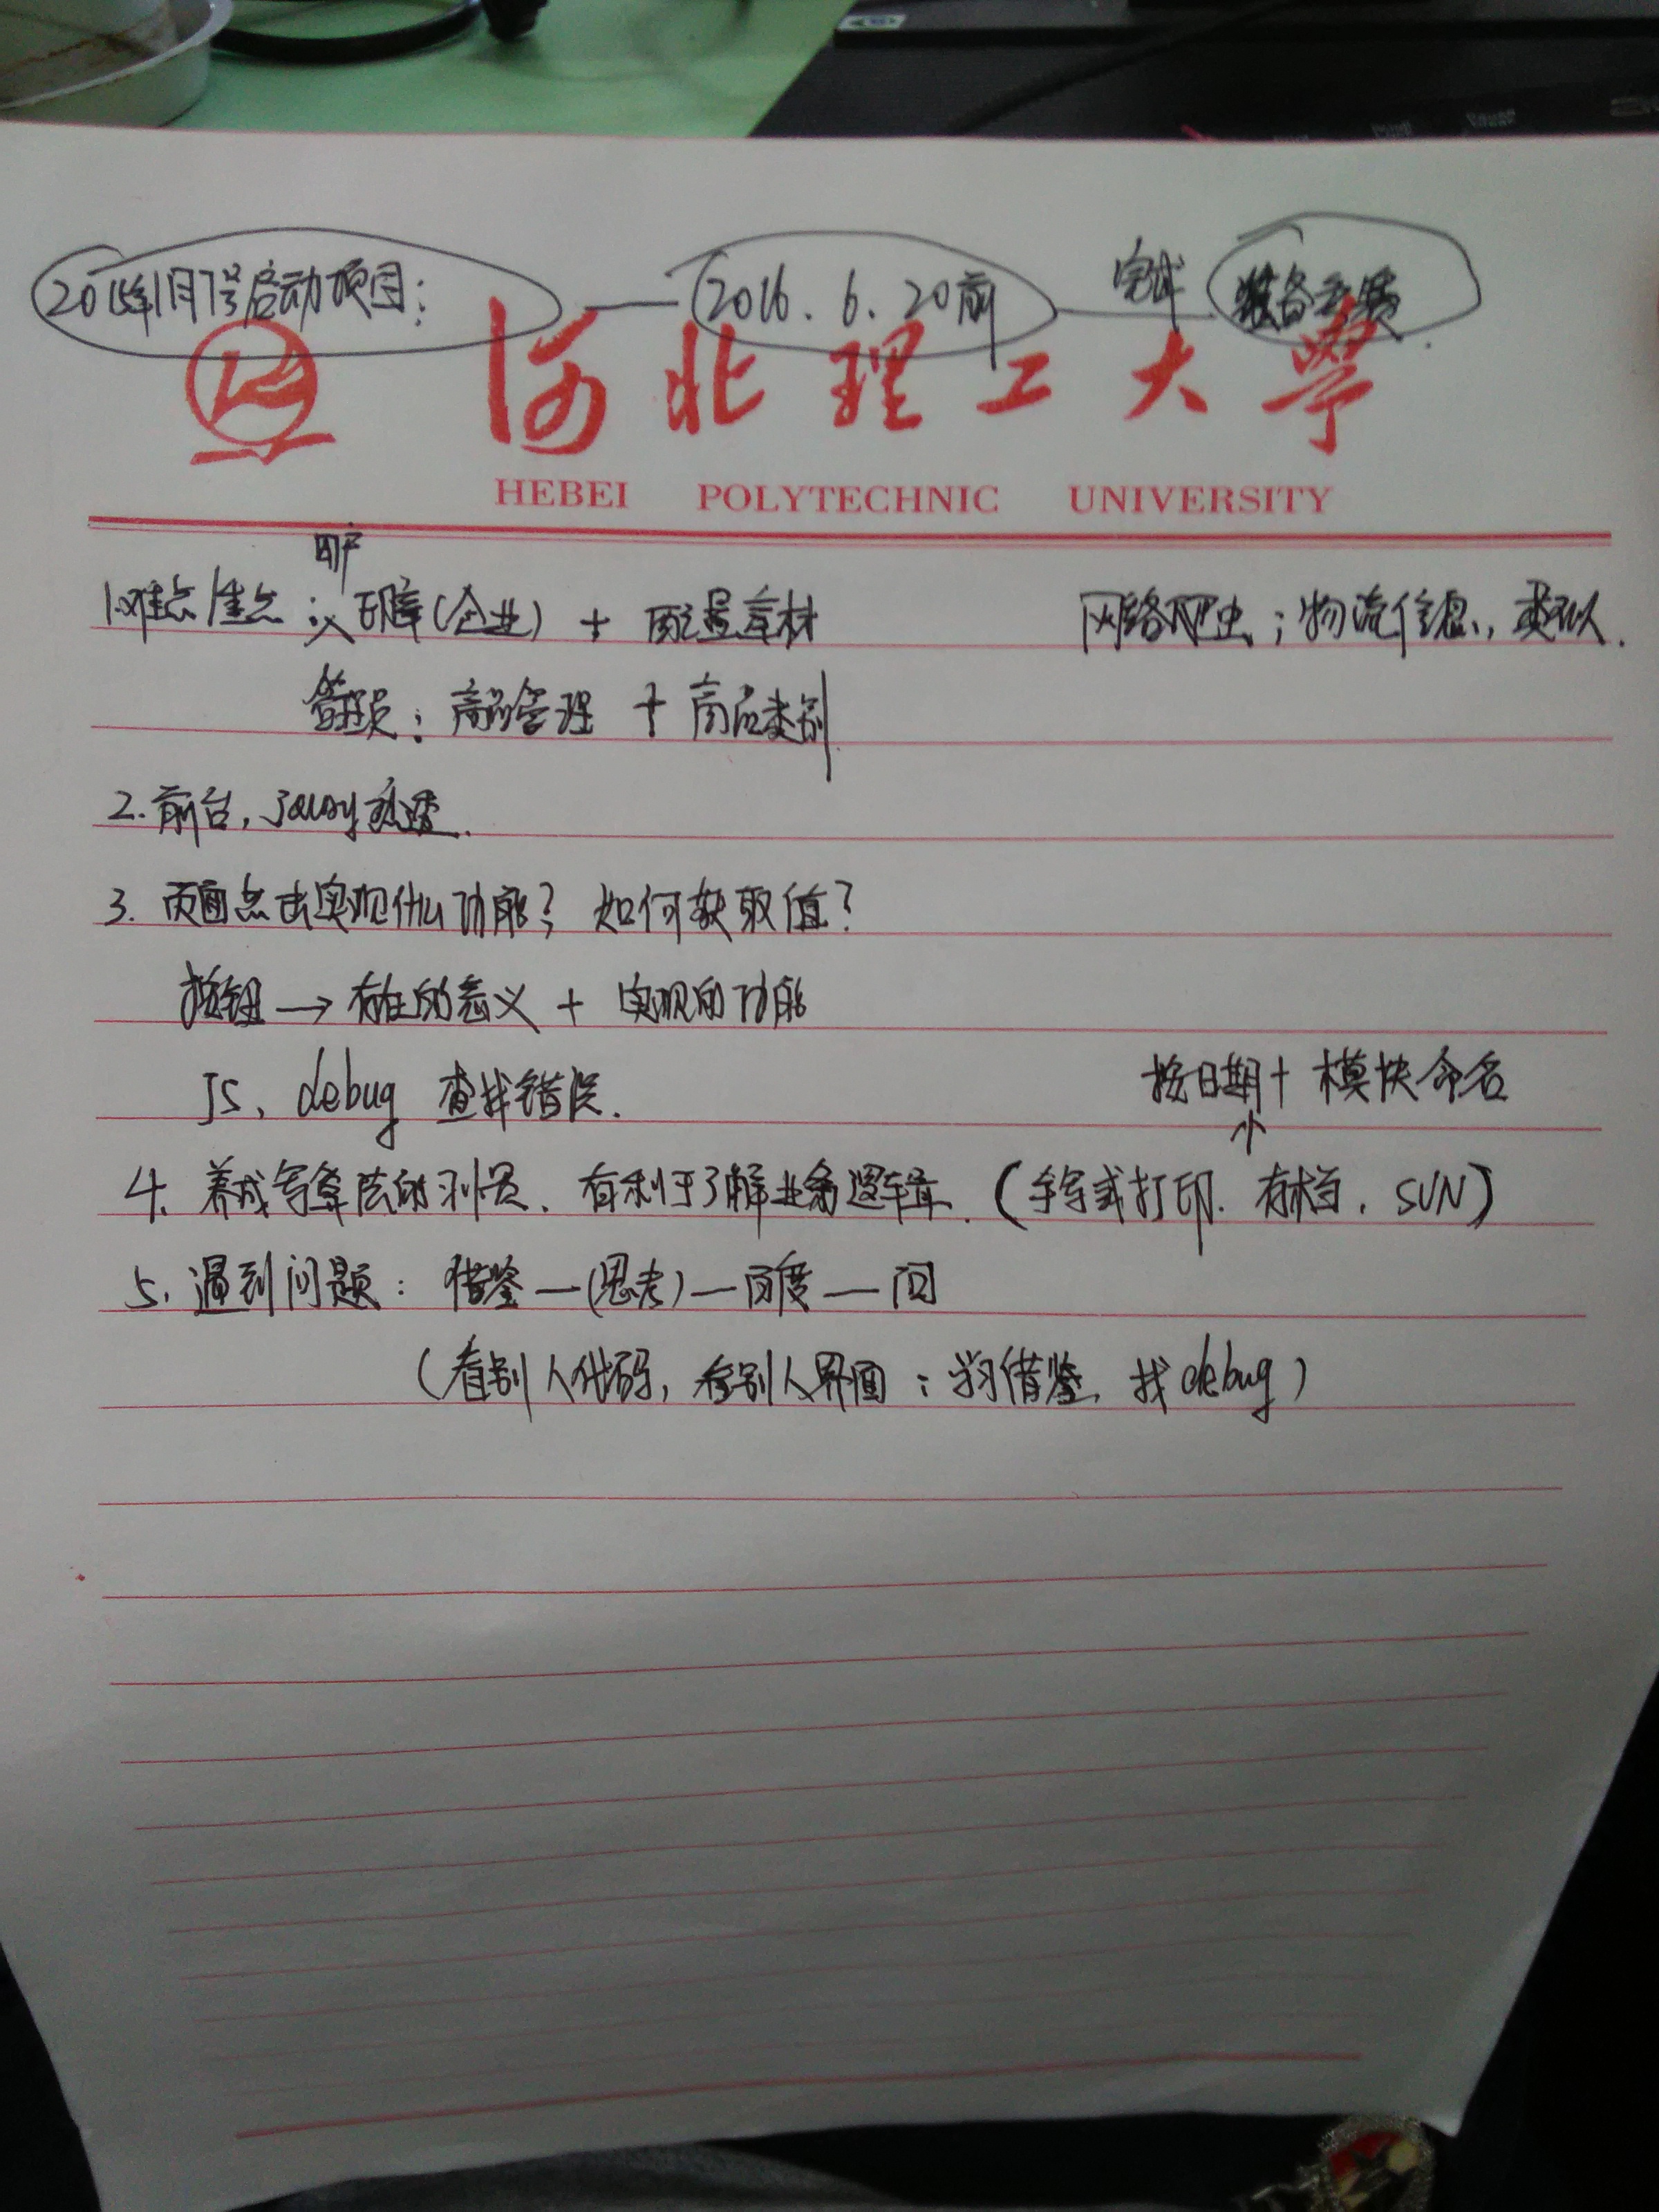 2015年1月7号启动项目: — 2016.6.20前 — 完成 装备
河北理工大學
HEBEI POLYTECHNIC UNIVERSITY
用户
1.难点/重点: 库(企业) + 配置 网络爬虫;物流信息,类似.
管理员: 商品管理 + 商品类别
2. 前台, jquery
3. 页面点击实现什么功能? 如何获取值?
按钮 → 存在的意义 + 实现的功能
JS、debug 查找错误.
按日期+模块命名
4. 养成写算法的习惯、有利于了解业务逻辑. (手写或打印. 存档. SVN)
5. 遇到问题: 借鉴—(思考)—百度—问
(看别人代码, 看别人界面; 学习借鉴, 找debug)